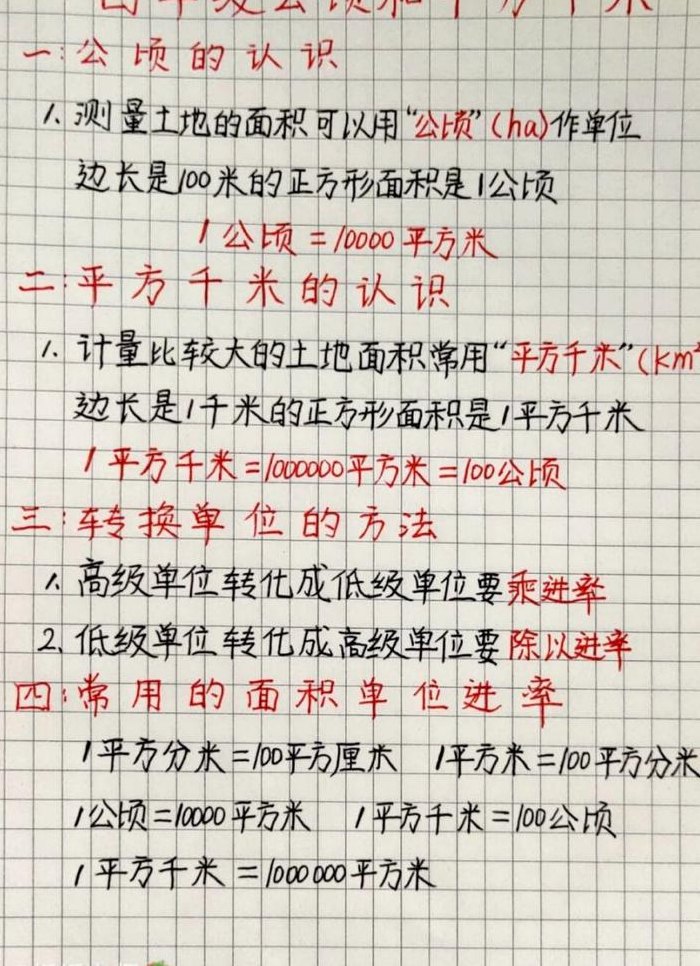 四年级公顷和平方千米
一:公顷的认识
1. 测量土地的面积可以用“公顷”(ha)作单位
边长是100米的正方形面积是1公顷
1公顷=10000平方米
二:平方千米的认识
1. 计量比较大的土地面积常用“平方千米”(km²
边长是1千米的正方形面积是1平方千米
1平方千米=1000000平方米=100公顷
三:转换单位的方法
1. 高级单位转化成低级单位要乘进率
2. 低级单位转化成高级单位要除以进率
四:常用的面积单位进率
1平方分米=100平方厘米 1平方米=100平方分米
1公顷=10000平方米 1平方千米=100公顷
1平方千米=1000000平方米